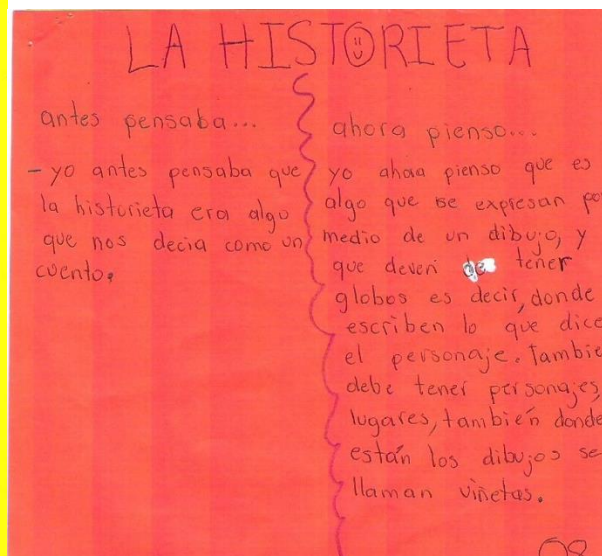 LA HISTORIETA
antes pensaba...
- yo antes pensaba que
la historieta era algo
que nos decia como un
cuento.
ahora pienso...
yo ahora pienso que es
algo que se expresan po
medio de un dibujo, y
que deven de tener
globos es decir, donde
escriben lo que dice
el personaje. Tambie
debe tener personajes,
lugares, también donde
están los dibujos se
llaman viñetas.